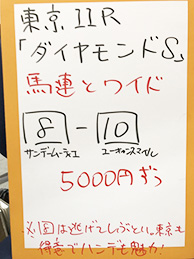 東京11R
「ダイヤモンドS」
馬連とワイド
8-10
サンデームーティエ ユーキャンスマイル
5000円ずつ
※⑧は逃げてしぶとい。東京も
得意でハンデも魅力!